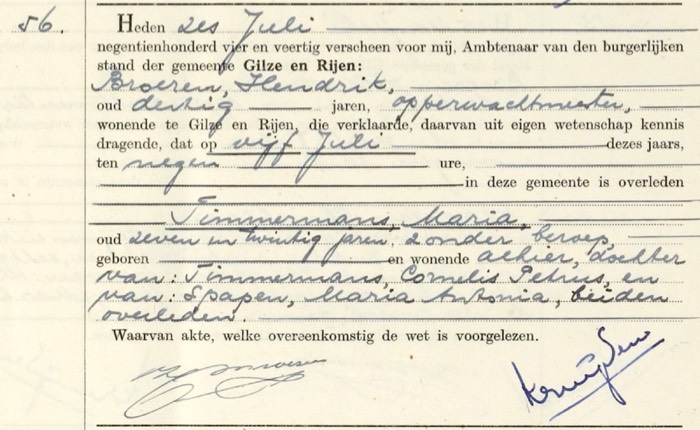 56.
Heden zes Juli
negentienhonderd vier en veertig verscheen voor mij, Ambtenaar van den burgerlijken
stand der gemeente Gilze en Rijen:
Broeren, Hendrik,
oud dertig jaren, opperwachtmeester,
wonende te Gilze en Rijen, die verklaarde, daarvan uit eigen wetenschap kennis
dragende, dat op vijf Juli dezes jaars,
ten negen ure,
in deze gemeente is overleden
Timmermans, Maria,
oud zeven en twintig jaren, zonder beroep,
geboren en wonende alhier, dochter
van: Timmermans, Cornelis Petrus, en
van: Spapen, Maria Antonia, beiden
overleden.
Waarvan akte, welke overeenkomstig de wet is voorgelezen.